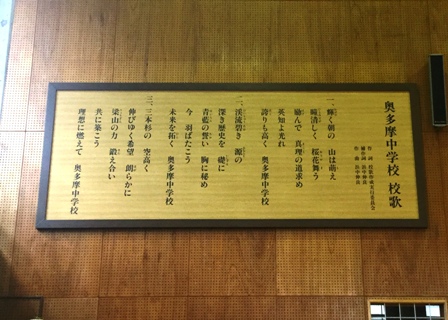 奥多摩中学校 校歌
一、輝く朝の 山は萌え
清しく 桜花舞う
励んで 真理の道求め
英知よ光れ
誇りも高く 奥多摩中学校
二、渓流碧き 源の
深き歴史を 礎に
青藍の誓い 胸に秘め
今 羽ばたこう
未来を拓く 奥多摩中学校
三、三本杉の 空高く
伸びゆく希望 朗らかに
梁山の力 鍛え合い
共に築こう
理想に燃えて 奥多摩中学校